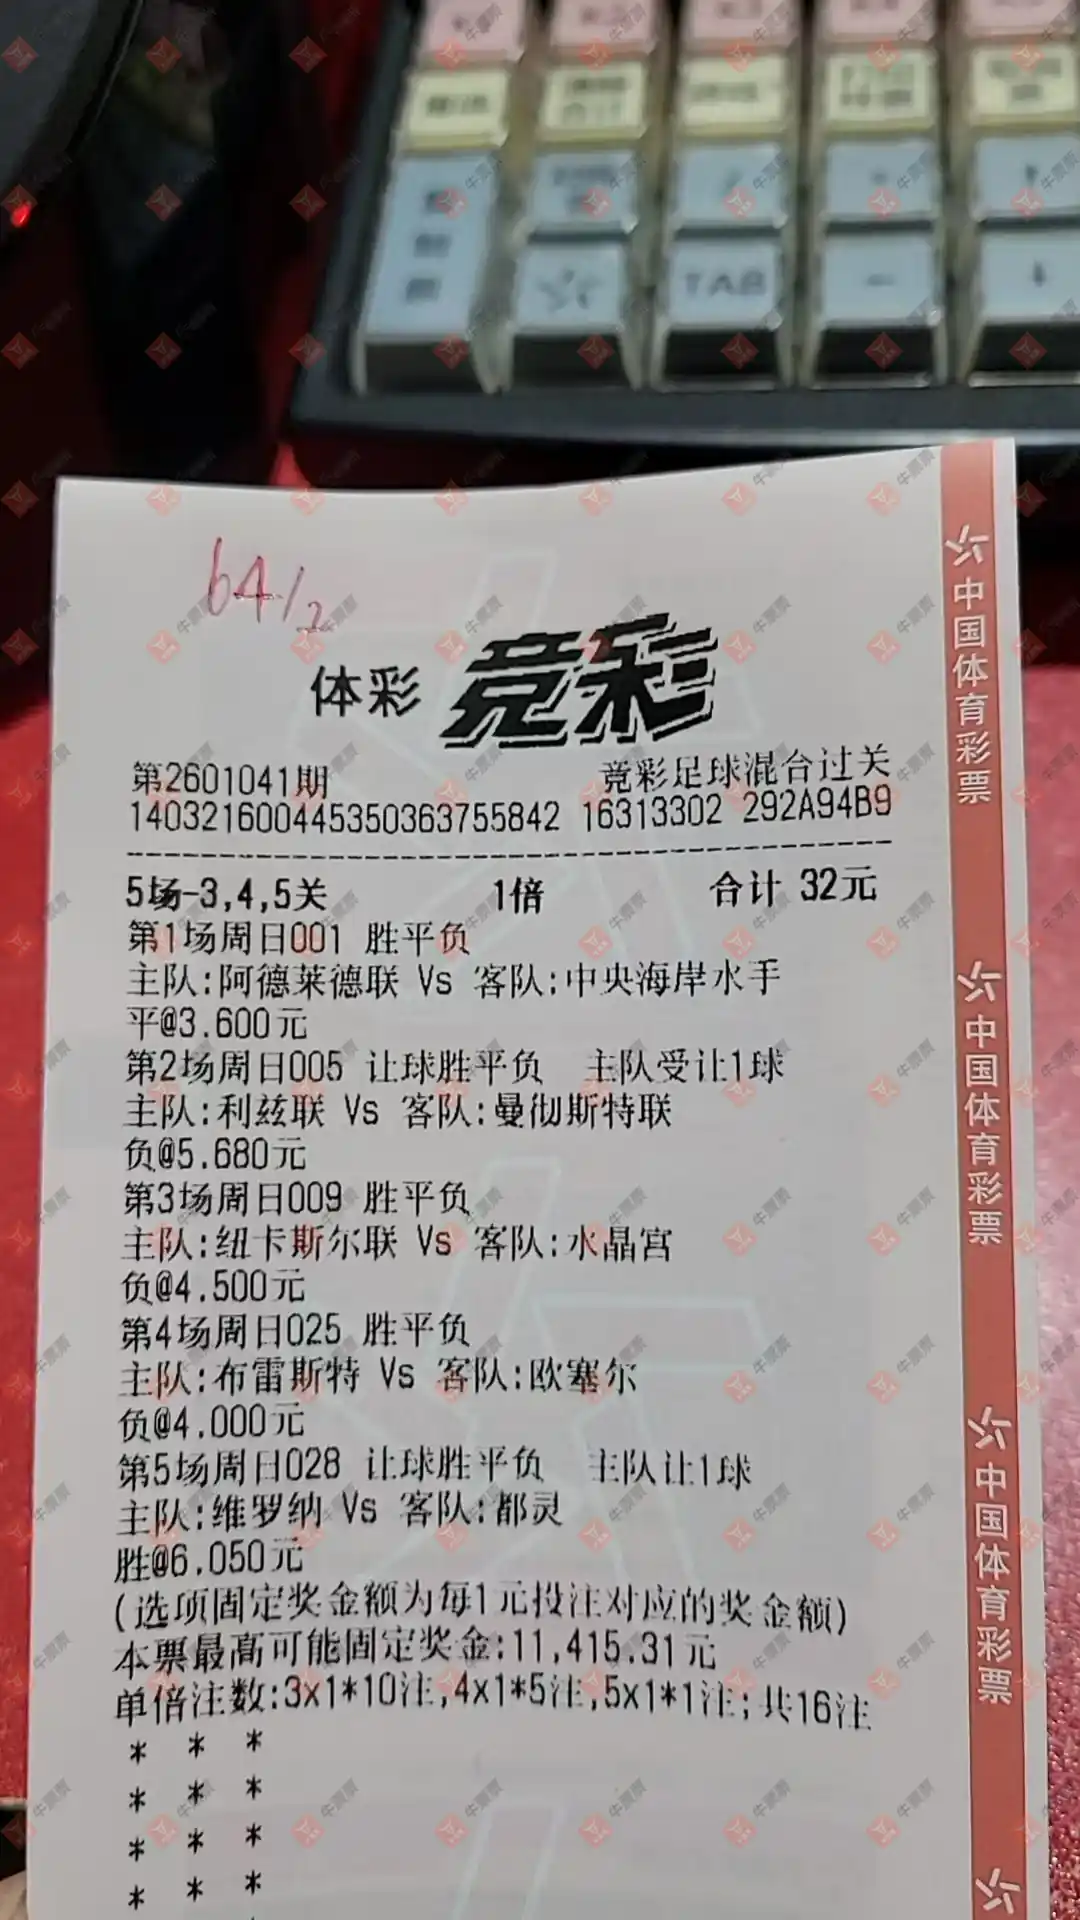 TAB
64/2
体彩 竞彩
第2601041期 竞彩足球混合过关
140321600445350363755842 16313302 292A94B9
5场-3,4,5关 1倍 合计 32元
第1场周日001 胜平负
主队:阿德莱德联 Vs 客队:中央海岸水手
平@3.600元
第2场周日005 让球胜平负 主队受让1球
主队:利兹联 Vs 客队:曼彻斯特联
负@5.680元
第3场周日009 胜平负
主队:纽卡斯尔联 Vs 客队:水晶宫
负@4.500元
第4场周日025 胜平负
主队:布雷斯特 Vs 客队:欧塞尔
负@4.000元
第5场周日028 让球胜平负 主队让1球
主队:维罗纳 Vs 客队:都灵
胜@6.050元
(选项固定奖金额为每1元投注对应的奖金额)
本票最高可能固定奖金:11,415.31元
单倍注数:3x1*10注,4x1*5注,5x1*1注;共16注
* * *
* * *
* * *
* * *
中国体育彩票
中国体育彩票
中国体育彩票
牛票票